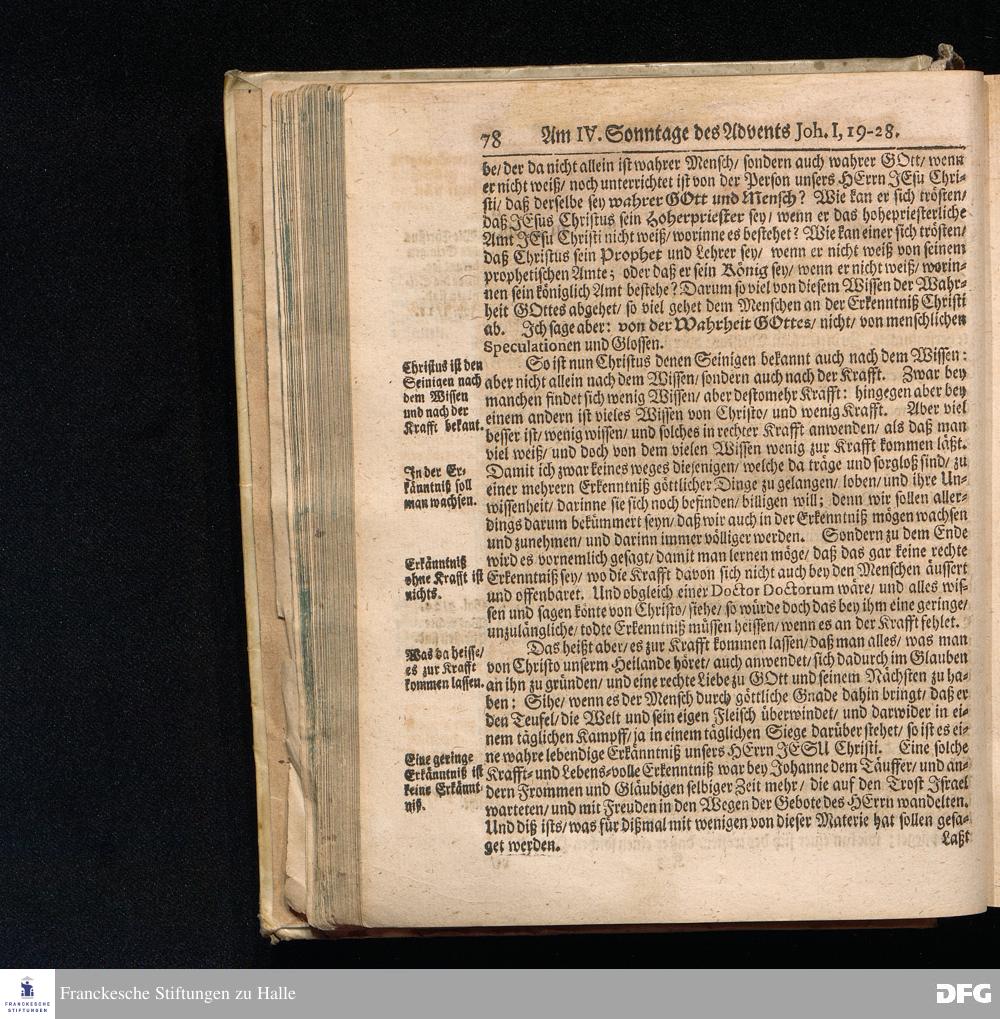 78 Am IV. Sonntage des Advents Joh. I, 19-28.
be/ der da nicht allein ist wahrer Mensch/ sondern auch wahrer GOtt/ wenn
er nicht weiß/ noch unterrichtet ist von der Person unsers HErrn JEsu Chri-
sti/ daß derselbe sey wahrer GOtt und Mensch? Wie kan er sich trösten/
daß JEsus Christus sein Hoherpriester sey/ wenn er das hohepriesterliche
Amt JEsu Christi nicht weiß/ worinne es bestehet? Wie kan einer sich trösten/
daß Christus sein Prophet und Lehrer sey/ wenn er nicht weiß von seinem
prophetischen Amte; oder daß er sein König sey/ wenn er nicht weiß/ worin-
nen sein königlich Amt bestehe? Darum so viel von diesem Wissen der Wahr-
heit GOttes abgehet/ so viel gehet dem Menschen an der Erkenntniß Christi
ab. Ich sage aber: von der Wahrheit GOttes/ nicht/ von menschlichen
Speculationen und Glossen.
Christus ist den
Seinigen nach
dem Wissen
und nach der
Krafft bekant.
So ist nun Christus denen Seinigen bekannt auch nach dem Wissen:
aber nicht allein nach dem Wissen/ sondern auch nach der Krafft. Zwar bey
manchen findet sich wenig Wissen/ aber destomehr Krafft: hingegen aber bey
einem andern ist vieles Wissen von Christo/ und wenig Krafft. Aber viel
besser ist/ wenig wissen/ und solches in rechter Krafft anwenden/ als daß man
viel weiß/ und doch von dem vielen Wissen wenig zur Krafft kommen läßt.
In der Er-
känntniß soll
man wachsen.
Damit ich zwar keines weges diejenigen/ welche da träge und sorgloß sind/ zu
einer mehrern Erkenntniß göttlicher Dinge zu gelangen/ loben/ und ihre Un-
wissenheit/ darinne sie sich noch befinden/ billigen will; denn wir sollen aller-
dings darum bekümmert seyn/ daß wir auch in der Erkenntniß mögen wachsen
und zunehmen/ und darinn immer völliger werden. Sondern zu dem Ende
Erkänntniß
ohne Krafft ist
nichts.
wird es vornemlich gesagt/ damit man lernen möge/ daß das gar keine rechte
Erkenntniß sey/ wo die Krafft davon sich nicht auch bey den Menschen äussert
und offenbaret. Und obgleich einer Doctor Doctorum wäre/ und alles wis-
sen und sagen könte von Christo/ siehe/ so würde doch das bey ihm eine geringe/
unzulängliche/ todte Erkenntniß müssen heissen/ wenn es an der Krafft fehlet.
Was da heisse/
es zur Krafft
kommen lassen.
Das heißt aber/ es zur Krafft kommen lassen/ daß man alles/ was man
von Christo unserm Heilande höret/ auch anwendet/ sich dadurch im Glauben
an ihn zu gründen/ und eine rechte Liebe zu GOtt und seinem Nächsten zu ha-
ben: Sihe/ wenn es der Mensch durch göttliche Gnade dahin bringt/ daß er
den Teufel/ die Welt und sein eigen Fleisch überwindet/ und darwider in ei-
nem täglichen Kampff/ ja in einem täglichen Siege darüber stehet/ so ist es ei-
Eine geringe
Erkänntniß ist
keine Erkännt-
niß.
ne wahre lebendige Erkänntniß unsers HErrn JESU Christi. Eine solche
Krafft- und Lebens-volle Erkenntniß war bey Johanne dem Täuffer/ und an-
dern Frommen und Gläubigen selbiger Zeit mehr/ die auf den Trost Israel
warteten/ und mit Freuden in den Wegen der Gebote des HErrn wandelten.
Und diß ists/ was für dißmal mit wenigen von dieser Materie hat sollen gesa-
get werden.
Laßt
FRANCKESCHE
STIFTUNGEN
Franckesche Stiftungen zu Halle
DFG